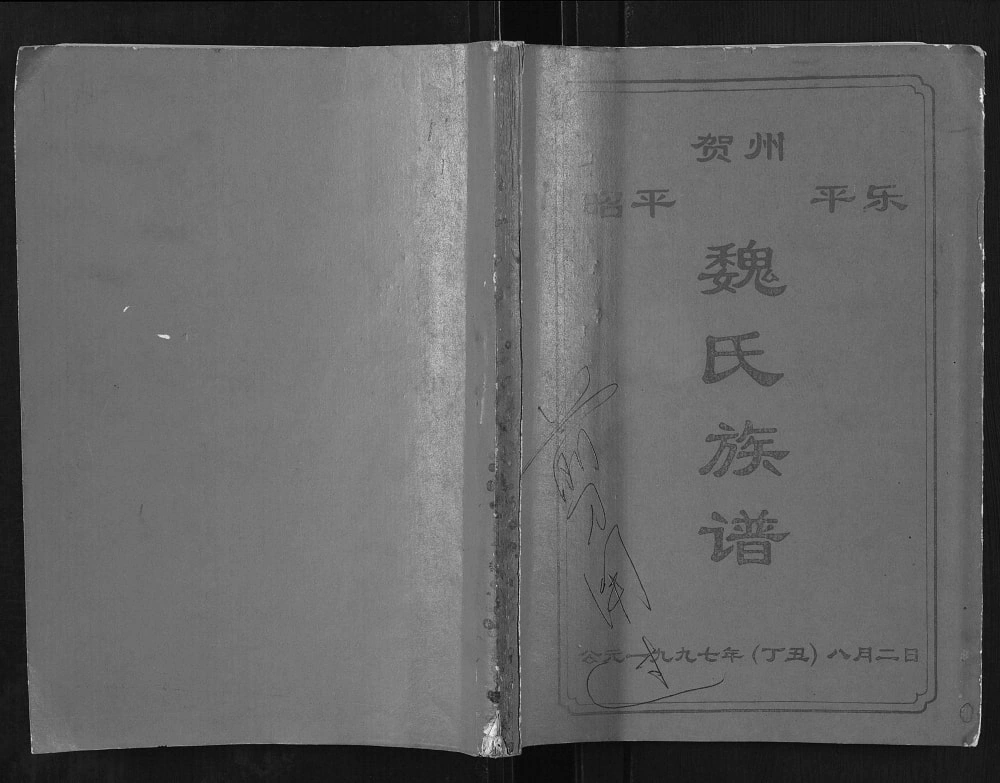 贺州
昭平 平乐
魏氏族谱
公元一九九七年（丁丑）八月二日